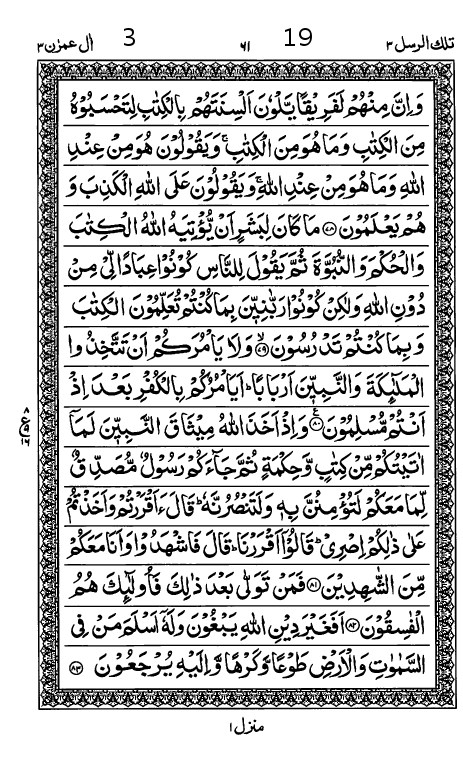 تلك الرسل ٣ ١٩ ٦١ 3 اٰل عمرٰن ٣
وَاِنَّ مِنْهُمْ لَفَرِيْقًا يَّلْوٗنَ اَلْسِنَتَهُمْ بِالْكِتٰبِ لِتَحْسَبُوْهُ
مِنَ الْكِتٰبِ وَمَا هُوَ مِنَ الْكِتٰبِ ۚ وَيَقُوْلُوْنَ هُوَ مِنْ عِنْدِ
اللّٰهِ وَمَا هُوَ مِنْ عِنْدِ اللّٰهِ ۚ وَيَقُوْلُوْنَ عَلَى اللّٰهِ الْكَذِبَ وَ
هُمْ يَعْلَمُوْنَ ﴿٧٨﴾ مَا كَانَ لِبَشَرٍ اَنْ يُّؤْتِيَهُ اللّٰهُ الْكِتٰبَ
وَالْحُكْمَ وَالنُّبُوَّةَ ثُمَّ يَقُوْلَ لِلنَّاسِ كُوْنُوْا عِبَادًا لِّيْ مِنْ
دُوْنِ اللّٰهِ وَلٰكِنْ كُوْنُوْا رَبّٰنِيّٖنَ بِمَا كُنْتُمْ تُعَلِّمُوْنَ الْكِتٰبَ
وَبِمَا كُنْتُمْ تَدْرُسُوْنَ ﴿٧٩﴾ۙ وَلَا يَاْمُرَكُمْ اَنْ تَتَّخِذُوا
الْمَلٰٓئِكَةَ وَالنَّبِيّٖنَ اَرْبَابًا ؕ اَيَاْمُرُكُمْ بِالْكُفْرِ بَعْدَ اِذْ
اَنْتُمْ مُّسْلِمُوْنَ ﴿٨٠﴾ۧ وَاِذْ اَخَذَ اللّٰهُ مِيْثَاقَ النَّبِيّٖنَ لَمَاۤ
اٰتَيْتُكُمْ مِّنْ كِتٰبٍ وَّحِكْمَةٍ ثُمَّ جَآءَكُمْ رَسُوْلٌ مُّصَدِّقٌ
لِّمَا مَعَكُمْ لَتُؤْمِنُنَّ بِهٖ وَلَتَنْصُرُنَّهٗ ؕ قَالَ ءَاَقْرَرْتُمْ وَاَخَذْتُمْ
عَلٰى ذٰلِكُمْ اِصْرِيْ ؕ قَالُوْۤا اَقْرَرْنَا ؕ قَالَ فَاشْهَدُوْا وَاَنَا مَعَكُمْ
مِّنَ الشّٰهِدِيْنَ ﴿٨١﴾ فَمَنْ تَوَلّٰى بَعْدَ ذٰلِكَ فَاُولٰٓئِكَ هُمُ
الْفٰسِقُوْنَ ﴿٨٢﴾ اَفَغَيْرَ دِيْنِ اللّٰهِ يَبْغُوْنَ وَلَهٗۤ اَسْلَمَ مَنْ فِي
السَّمٰوٰتِ وَالْاَرْضِ طَوْعًا وَّكَرْهًا وَّاِلَيْهِ يُرْجَعُوْنَ ﴿٨٣﴾
منزل ١